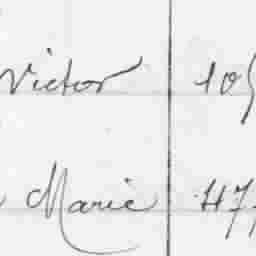 Victor 105
Marie 477